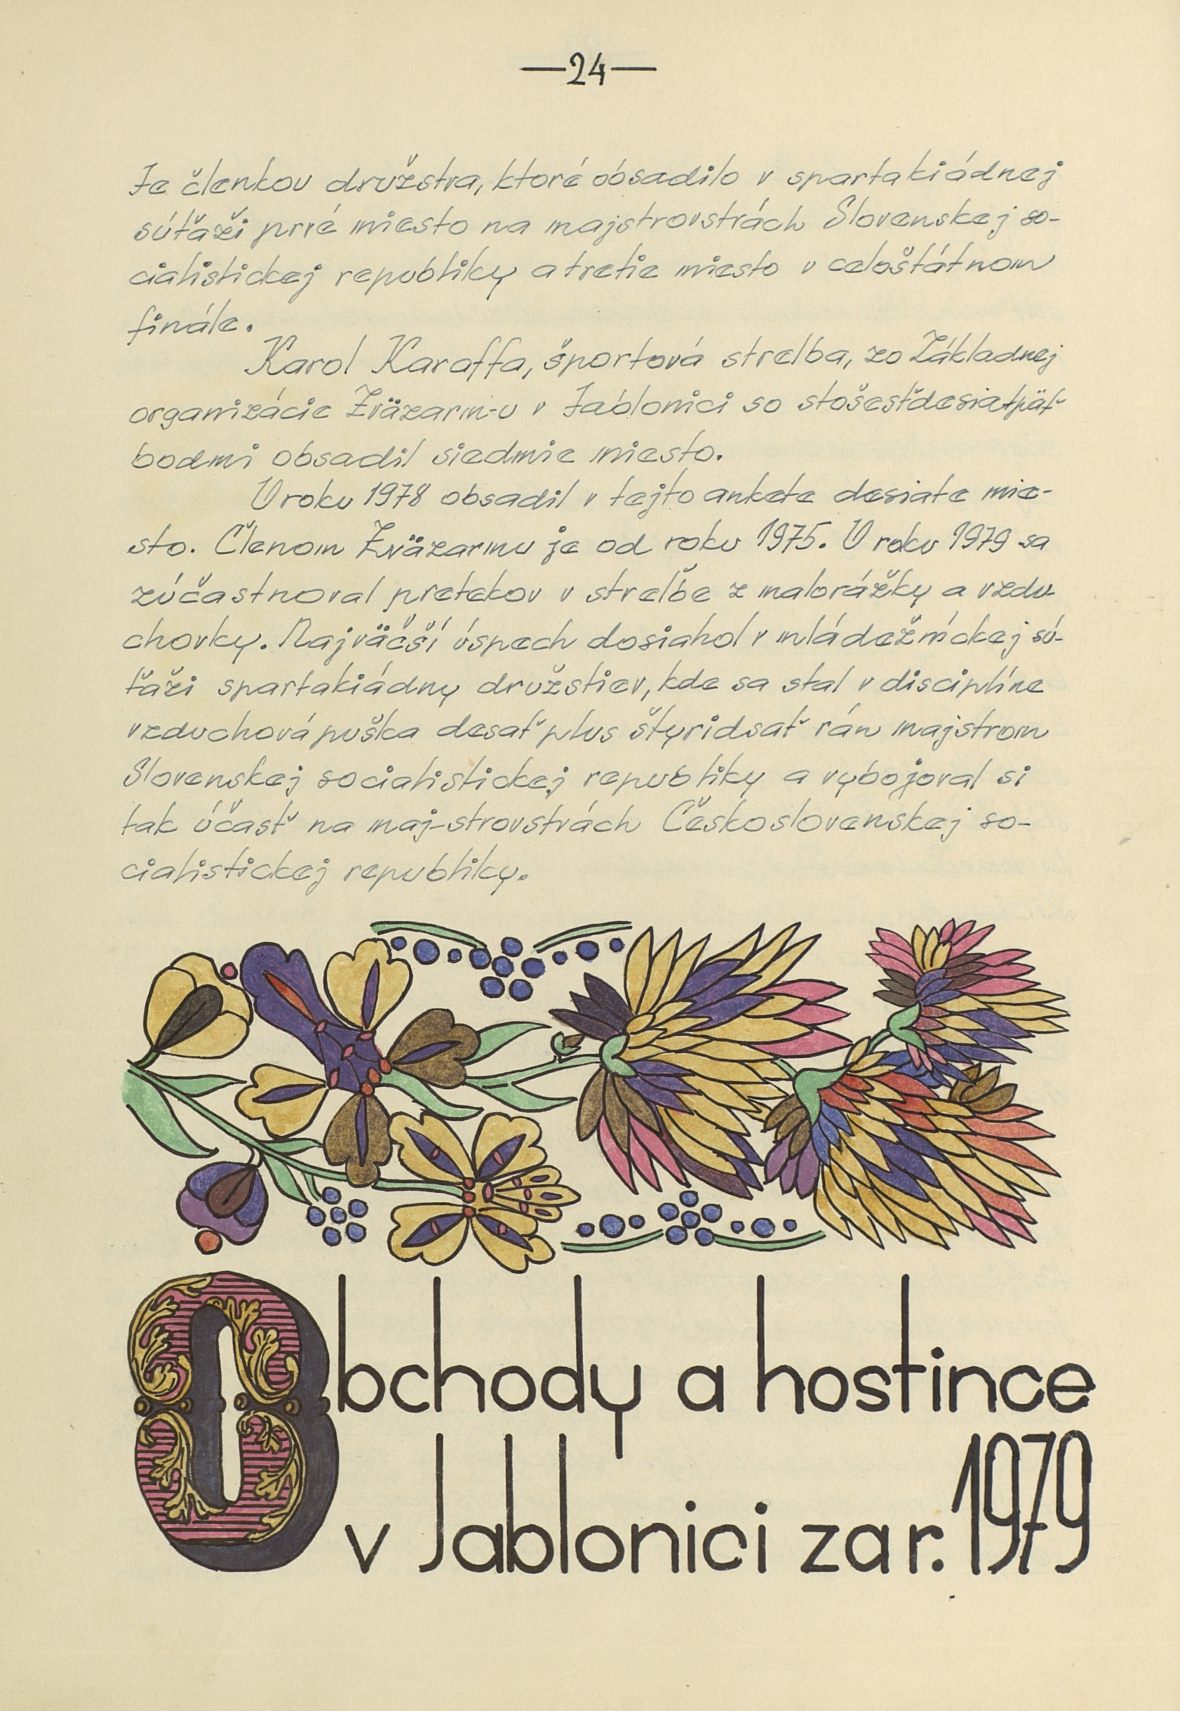 —24—
Je členkou družstva, ktoré obsadilo v spartakiádnej
súťaži prvé miesto na majstrovstvách Slovenskej so-
cialistickej republiky a tretie miesto v celoštátnom
finále.
Karol Karaffa, športová streľba, zo Základnej
organizácie Zväzarm-u v Jablonici so stošesťdesiatpäť
bodmi obsadil siedmie miesto.
V roku 1978 obsadil v tejto ankete desiate mie-
sto. Členom Zväzarmu je od roku 1975. V roku 1979 sa
zúčastnoval pretekov v streľbe z malorážky a vzdu-
chovky. Najväčší úspech dosiahol v mládežníckej sú-
ťaži spartakiádny družstiev, kde sa stal v disciplíne
vzduchová puška desať plus štyridsať rán majstrom
Slovenskej socialistickej republiky a vybojoval si
tak účasť na maj-strovstvách Československej so-
cialistickej republiky.
Obchody a hostince
v Jablonici za r. 1979